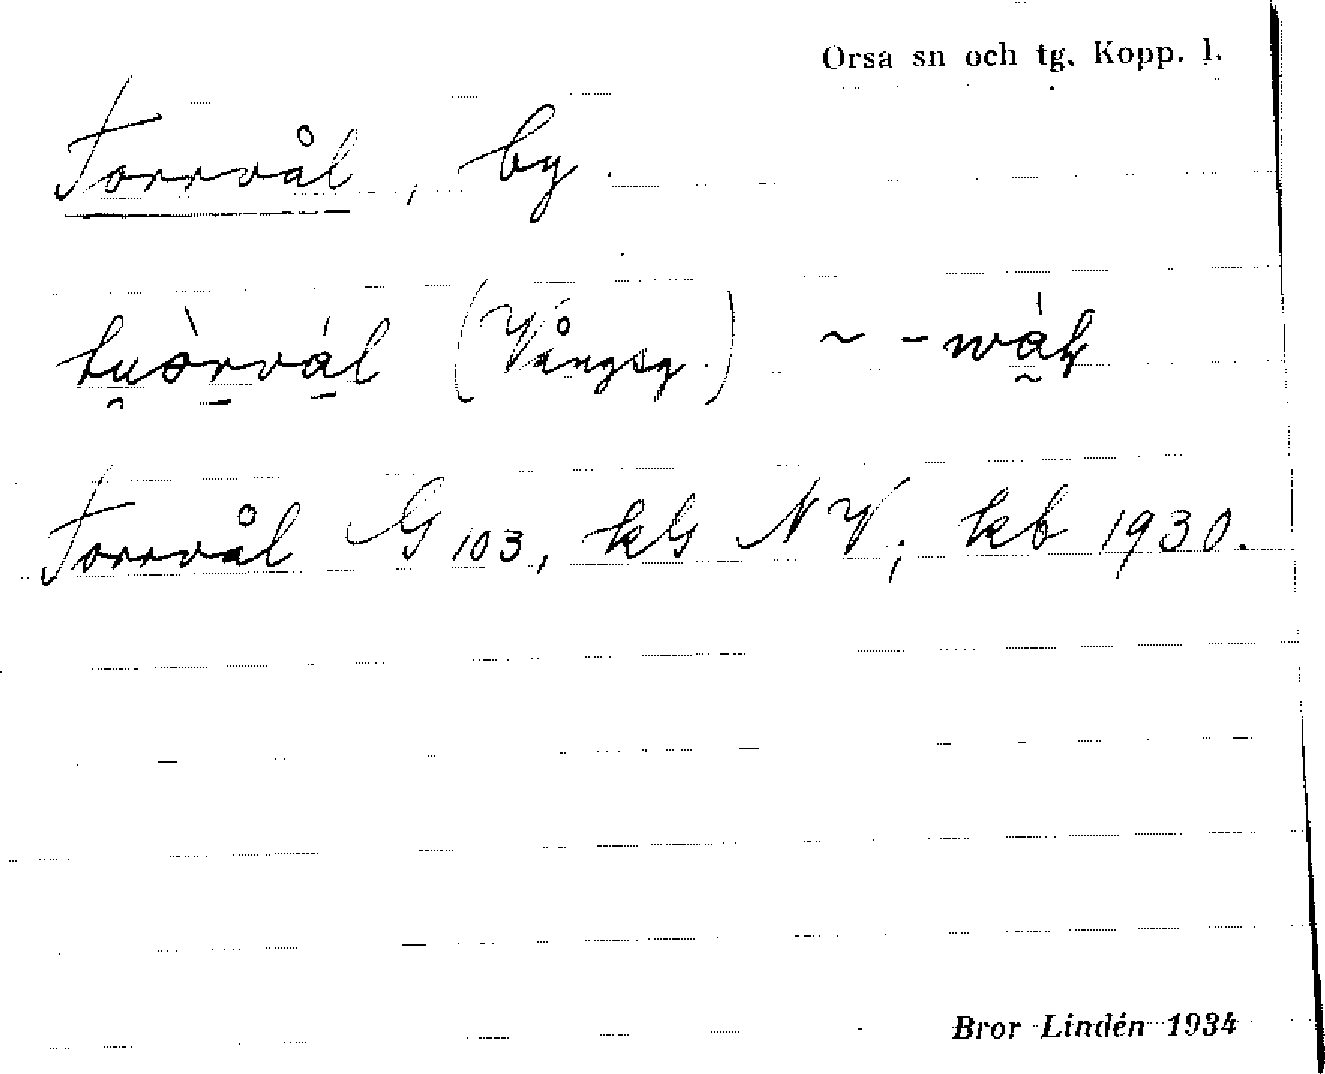 Orsa sn och tg. Kopp. l.
Torrvål, by.
tu̯òrvál (Vångsg.) ~ -wàk
Torrvål G 103, kG NV; kb 1930.
Bror Lindén 1934